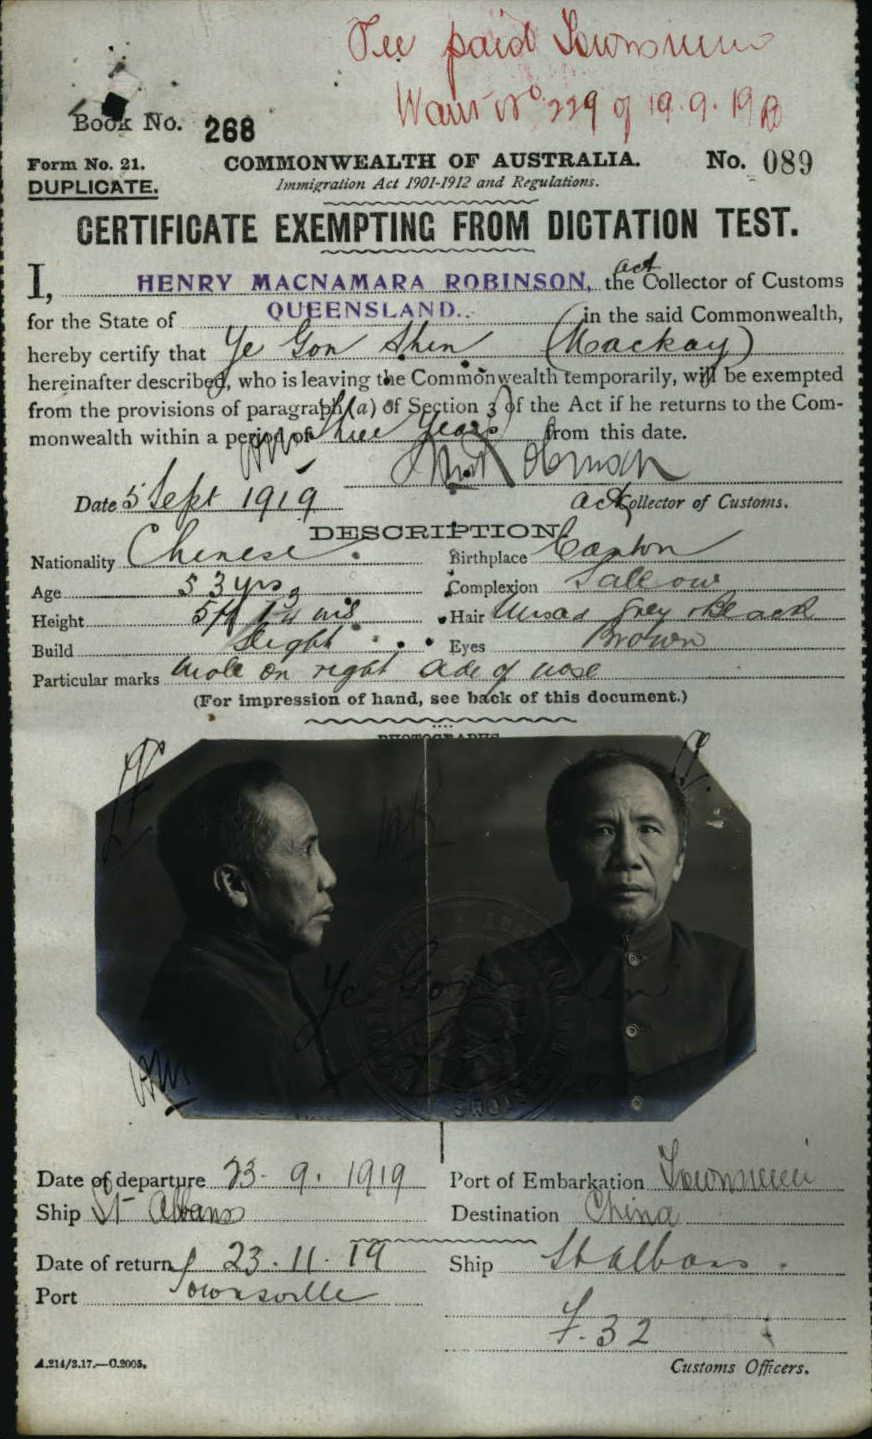 Fee paid Townsville
No 229 of 19.9.19
Book No. 268
Form No. 21. COMMONWEALTH OF AUSTRALIA. No. 089
DUPLICATE. Immigration Act 1901-1912 and Regulations.
CERTIFICATE EXEMPTING FROM DICTATION TEST.
act
I, HENRY MACNAMARA ROBINSON, the Collector of Customs
for the State of QUEENSLAND.. in the said Commonwealth,
hereby certify that Ye Gon Shen (Mackay)
hereinafter described, who is leaving the Commonwealth temporarily, will be exempted
from the provisions of paragraph (a) of Section 3 of the Act if he returns to the Com-
monwealth within a period of three years from this date.
Robinson
Date 5 Sept 1919 act Collector of Customs.
DESCRIPTION
Nationality Chinese Birthplace Canton
Age 53 yrs Complexion Sallow
Height 5ft Hair Grey Black
Build Slight Eyes Brown
Particular marks Mole on right side of nose
(For impression of hand, see back of this document.)
PHOTOGRAPHS
Ye Gon Shen
Date of departure 23. 9. 1919 Port of Embarkation Townsville
Ship St Albans Destination China
Date of return 23.11.19 Ship St Albans
Port Townsville
F. 32
A.214/3.17.—C.2005. Customs Officers.